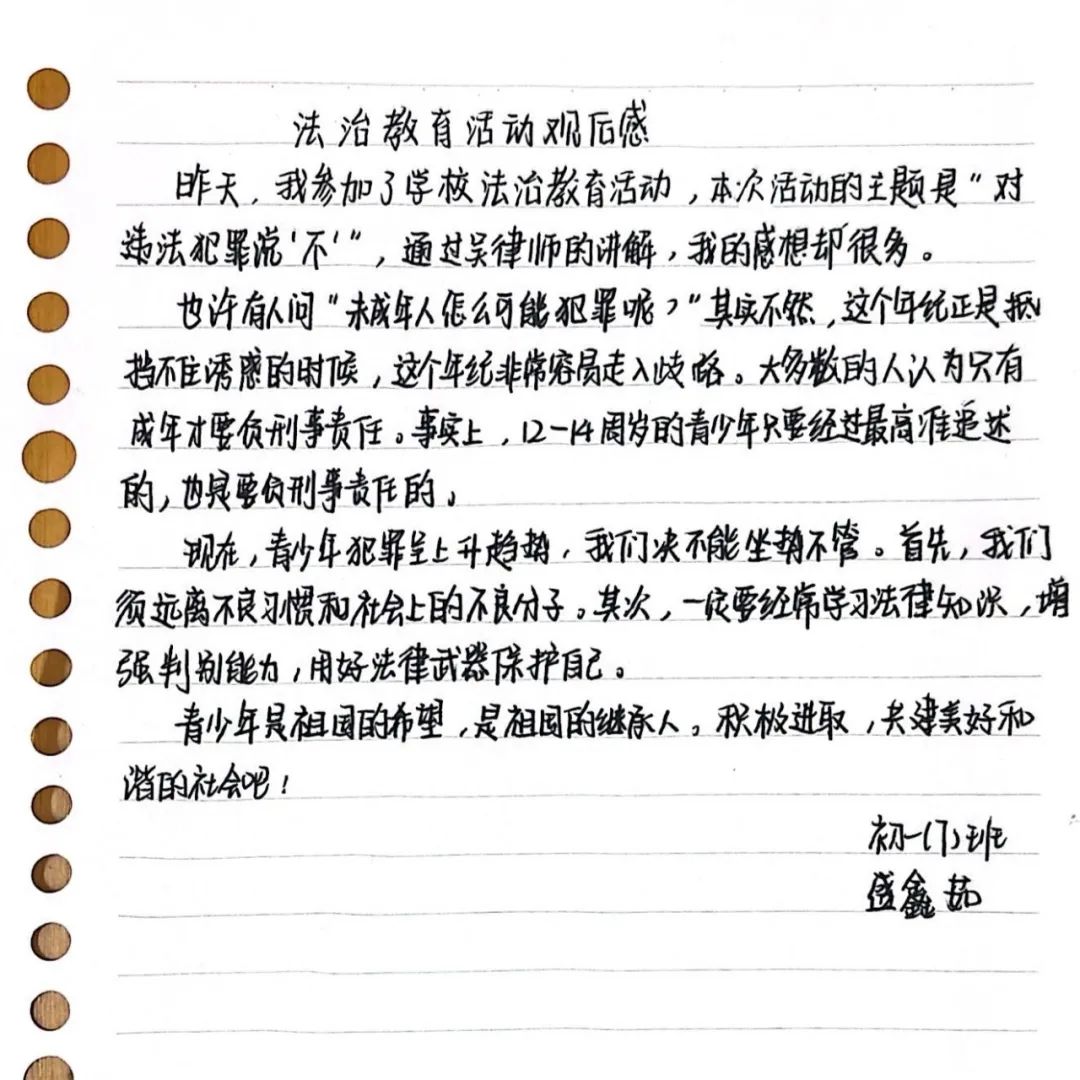 法治教育活动观后感
昨天，我参加了学校法治教育活动，本次活动的主题是“对
违法犯罪说‘不’”，通过吴律师的讲解，我的感想却很多。
也许有人问“未成年人怎么可能犯罪呢？”其实不然，这个年纪正是抵
挡不住诱惑的时候，这个年纪非常容易走入歧路。大多数的人认为只有
成年才要负刑事责任。事实上，12-14周岁的青少年只要经过最高准追述
的，也是要负刑事责任的。
现在，青少年犯罪呈上升趋势，我们决不能坐势不管。首先，我们
须远离不良习惯和社会上的不良分子。其次，一定要经常学习法律知识，增
强判别能力，用好法律武器保护自己。
青少年是祖国的希望，是祖国的继承人。积极进取，共建美好和
谐的社会吧！
初一(7)班
盛鑫茹